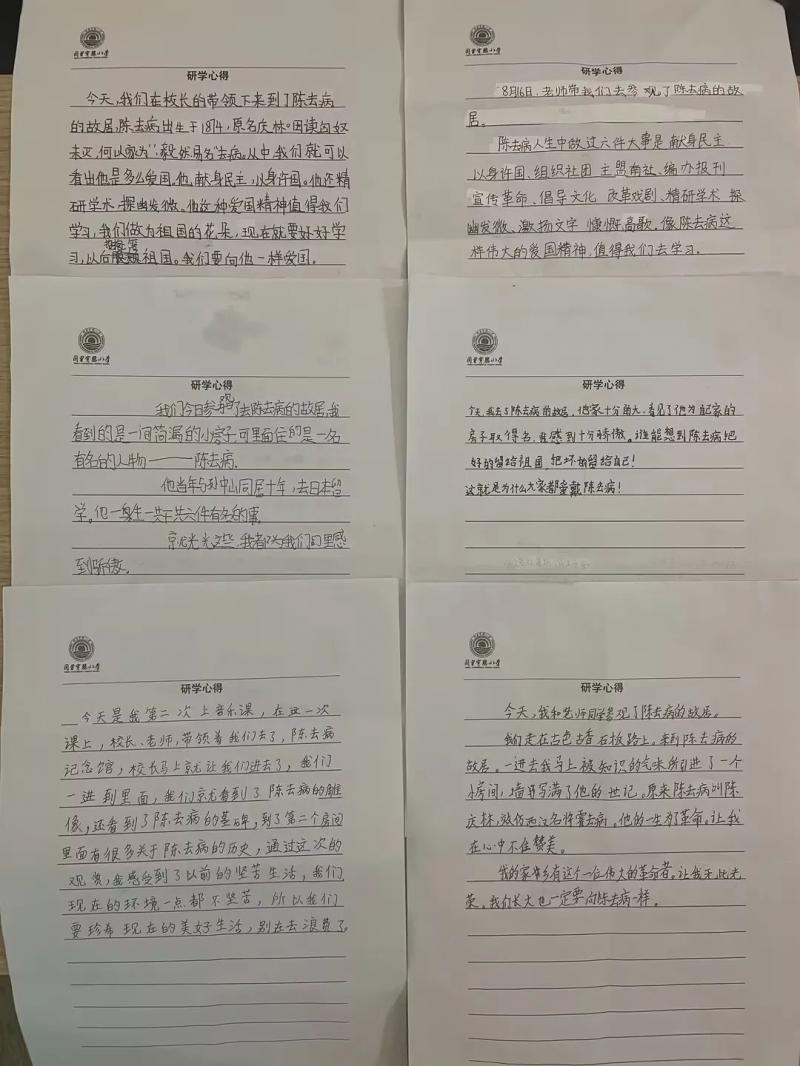 同里实验小学
研学心得
今天,我们在校长的带领下来到了陈去病
的故居,陈去病出生于1874,原名庆林。因读“匈奴
未灭,何以家为”,毅然易名“去病。从中我们就可以
看出他是多么爱国。他,献身民主,以身许国。他还精
研学术,探幽发微。他这种爱国精神值得我们
学习,我们做为祖国的花朵,现在就要好好学
习,以后报答祖国。我们要向他一样爱国。
同里实验小学
研学心得
8月16日,老师带我们去参观了陈去病的故
居。
陈去病人生中做过六件大事是献身民主
以身许国、组织社团 主盟南社、编办报刊
宣传革命、倡导文化 改革戏剧、精研学术 探
幽发微、激扬文字 慷慨高歌。像陈去病这
样伟大的爱国精神,值得我们去学习.
同里实验小学
研学心得
我们今日参观了去陈去病的故居,我
看到的是一间简漏的小房子可里面住的是一名
有名的人物———陈去病.
他当年与孙中山同居十年,去日本留
学。他一生一共干共六件有名的事.
就光光这些,我都为我们同里感
到骄傲.
同里实验小学
研学心得
今天,我去了陈去病的故居,他家十分的大,看见了他为自己家的
房子取得名,我感到十分骄傲。谁能想到陈去病把
好的留给祖国,把坏的留给自己!
这就是为什么大家都爱戴陈去病!
同里实验小学
研学心得
今天是我第二次上音乐课,在这一次
课上,校长、老师,带领着我们去了,陈去病
记念馆,校长马上就让我们进去了,我们
一进到里面,我们就看到了陈去病的雕
像,还看到了陈去病的墓碑,到了第二个房间
里面有很多关于陈去病的历史,通过这次的
观赏,我感受到了以前的坚苦生活,我们
现在的环境一点都不坚苦,所以我们
要珍希现在的美好生活,别在去浪费了.
同里实验小学
研学心得
今天,我和老师同学参观了陈去病的故居。
我们走在古色古香石板路上。来到陈去病的
故居。一进去我马上被知识的气味所引进了一个
小房间,墙书写满了他的世记。原来陈去病叫陈
庆林,效仿西汉名将霍去病。他的一生为了革命。让我
在心中不住赞美。
我的家乡有这个一位伟大的革命者。让我无比光
荣。我们长大也一定要向陈去病一样。